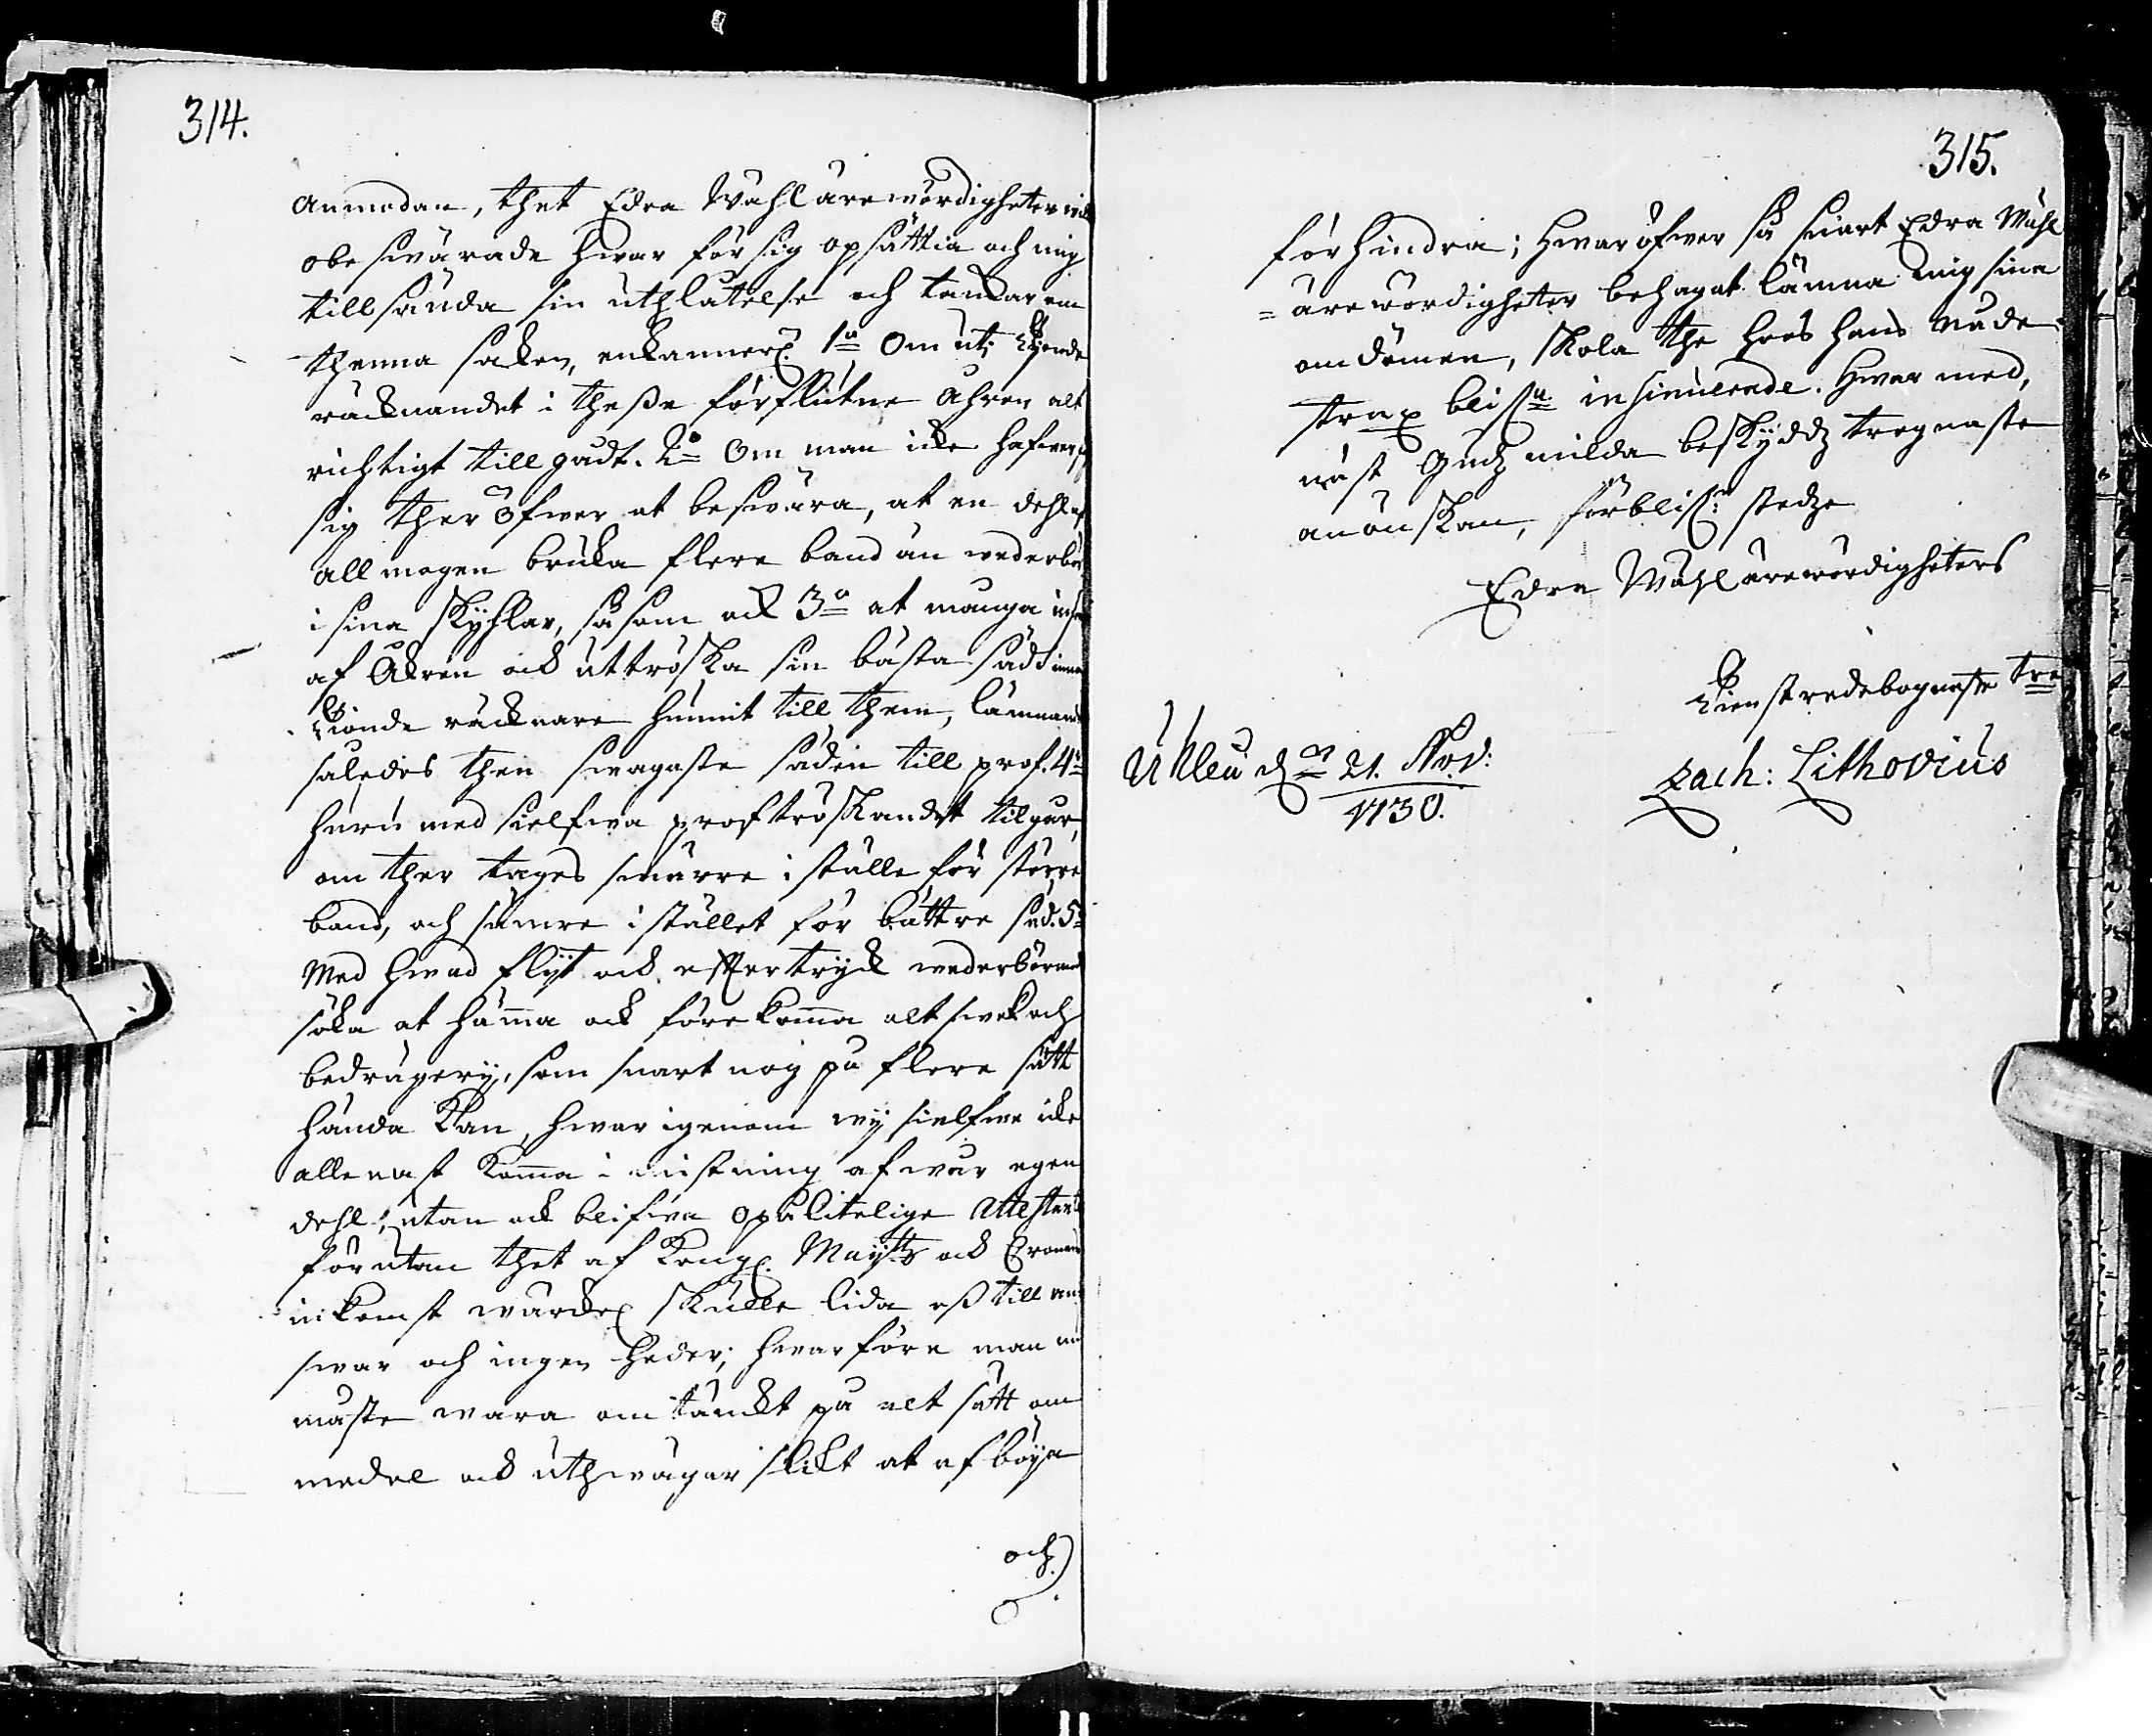 314.
anmodan, thet Edra Wähl ärewördigheter wid
obeswärade hwar för sig opsättia och mig
tillsända sin uthlåtelse och tankar om
thenna saken, enkannerl: 1o Om uti Tijonde
räcknandet i theße förflutne åhren alt
richtigt tillgådt. 2o Om man icke hafwer
sig ther öfwer at beswära, at en dehl af
allmogen bruka flere band än wederbör
i sina skyhlar, så som ock 3o at många
af Åkren ock uttröska sin bästa säd innan
Tionde räcknare hunnit till them, lämnande
således then swagaste säden till prof. 4o
huru med sielfwa proftröskandet tilgår,
om ther tages smärre i ställe för större
band, och sämre i stället för bättre säd. 5o
Med hwad flijt ock eftertryck wederbörande
söka at häma ock förekoma alt swek och
bedrägerij, som snart nog på flere sätt
hända kan, hwarigenom wij sielfwe icke
allenast koma i mistning af wår egen
dehl; utan ock blifwa opålitelige Attestant
förutan thet af Kongl. Maijtts ock Cronans
inkomst märckel: skulle lida oß till an
swar och ingen heder; hwarföre man nu
måste wara omtänckt på alt sätt om
medel ock uthwägar slikt at afböija
och
315.
förhindra; Hwaröfwer så snart Edra Wähl
= ärewördigheter behagat lämna mig sina
omdömen, skola the hoos hans nåde
strax blifa insinuerade. Hwarmed,
näst Gudz milda beskyddz trognaste
anönskan, förblifr stedze
Edra Wähl ärewördigheters
Tienstredebognaste tre
Uhleå dn 21. Nov:
1730.
Zach: Lithovius